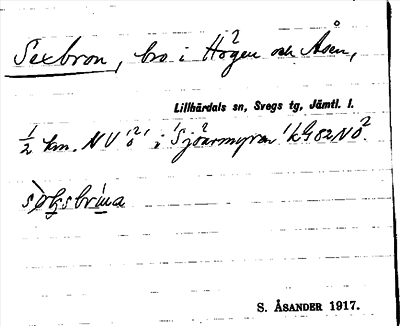 Sexbron, bro i Högen och Åsen,
Lillhärdals sn, Svegs tg, Jämtl. l.
½ km. NV 'ö' i 'Sjöarmyren' kG82NÖ.
S. ÅSANDER 1917.